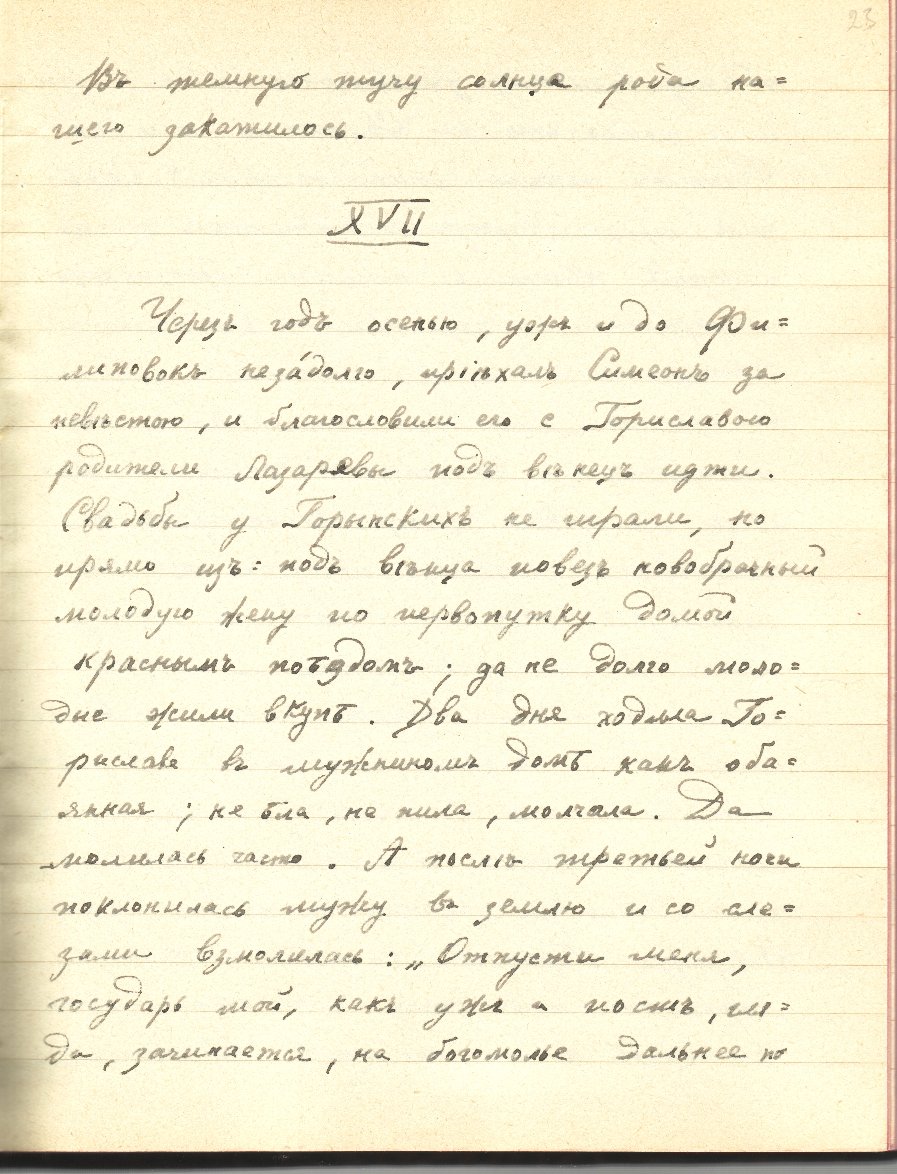 23
Въ темную тучу солнце рода на=
шего закатилось.
XVII
Черезъ годъ осенью, ужъ и до Фи=
липовокъ неза́долго, пріѣхалъ Симеонъ за
невѣстою, и благословили его с Гориславою
родители Лазаревы подъ вѣнецъ идти.
Свадьбы у Горынскихъ не играли, но
прямо изъ=подъ вѣнца повезъ новобрачный
молодую жену по первопутку домой
краснымъ поѣздомъ; да не долго моло=
дые жили вкупѣ. Два дня ходила Го=
рислава въ мужниномъ домѣ какъ оба=
янная; не ѣла, не пила, молчала. Да
молилась часто. А послѣ третьей ночи
поклонилась мужу въ землю и со сле=
зами взмолилась: „Отпусти меня,
государь мой, какъ ужъ и постъ, гля=
ди, зачинается, на богомолье дальнее по